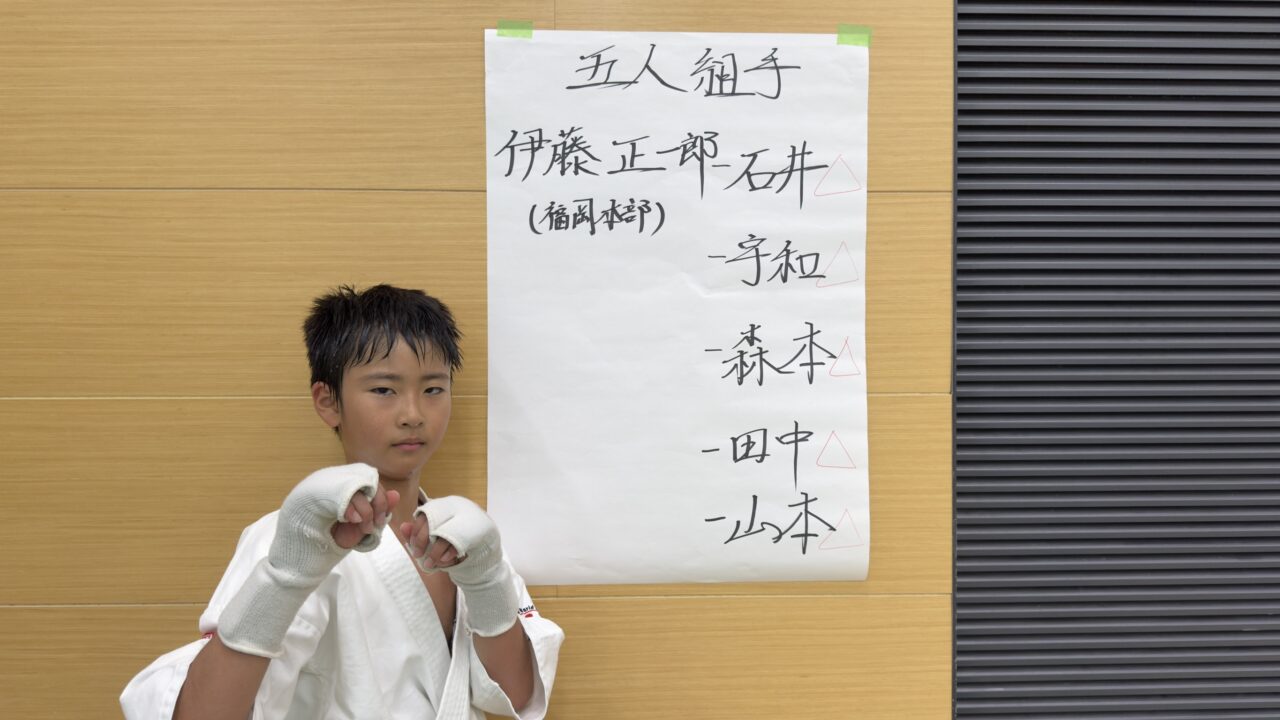 五人組手
伊藤正一郎 - 石井 △
(福岡本部)
- 宇和 △
- 森本 △
- 田中 △
- 山本 △